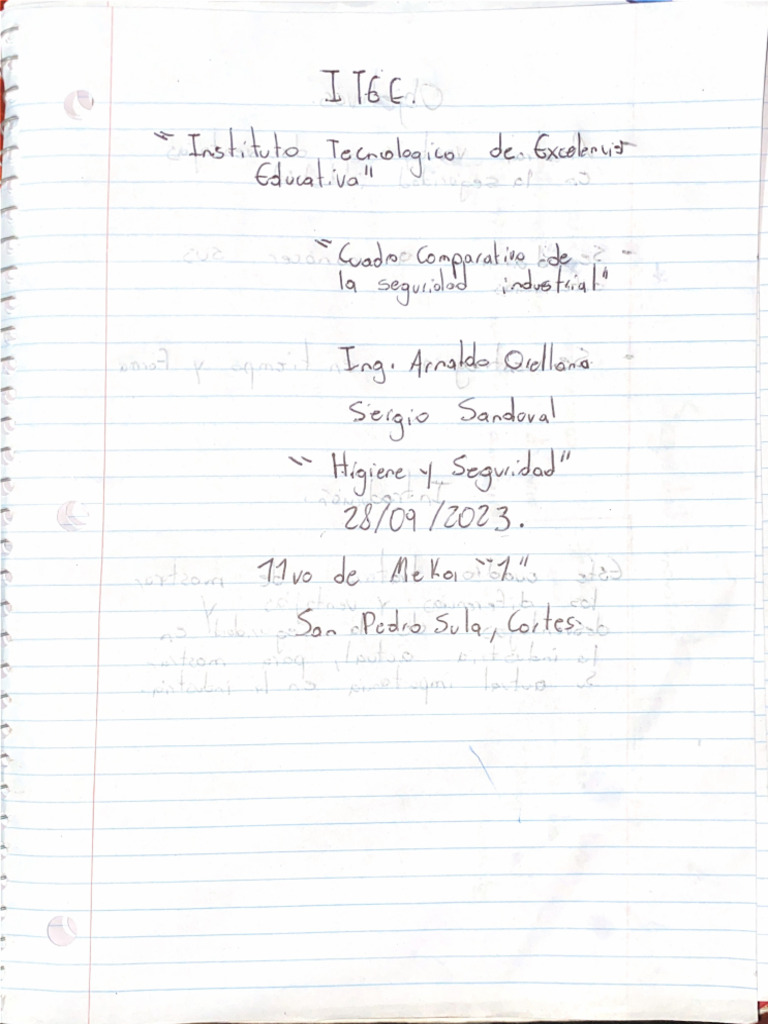 ITEE.
"Instituto Tecnologico de Excelencia
Educativa"
"Cuadro Comparativo de
la seguridad industrial"
Ing. Arnaldo Orellana
Sergio Sandoval
"Higiene y Seguridad"
28/09/2023.
11vo de Meka "1"
San Pedro Sula, Cortes